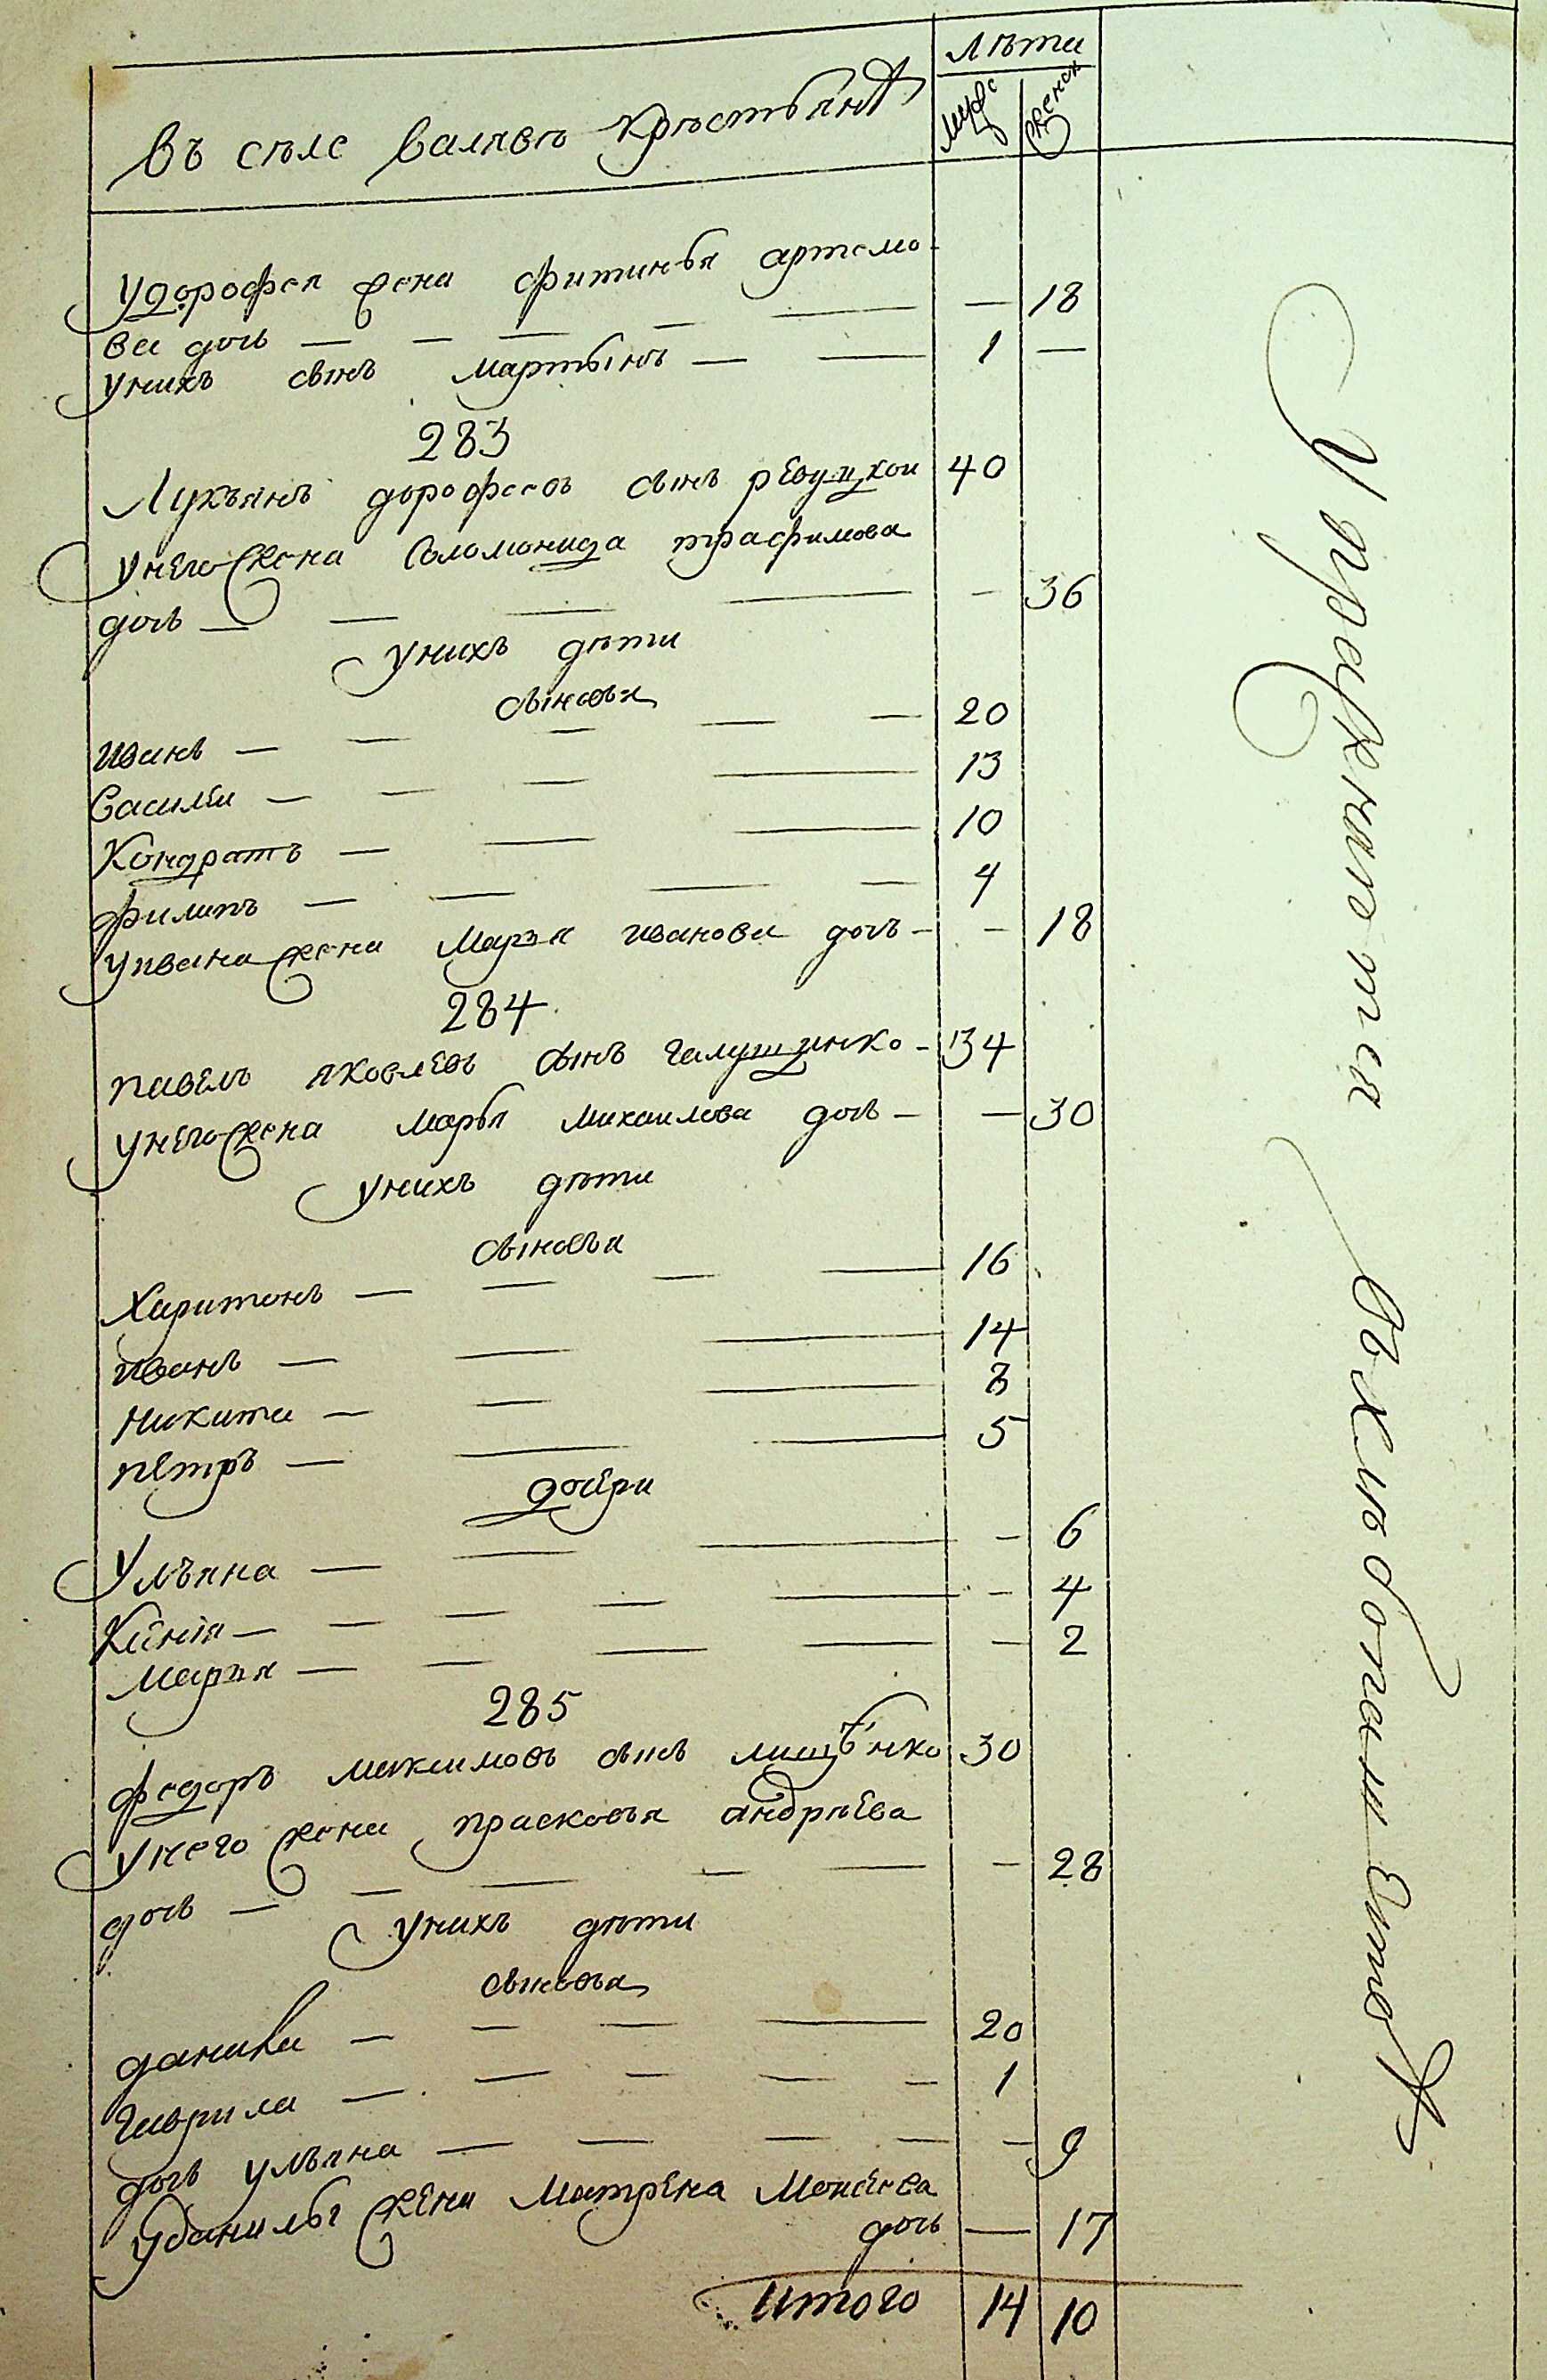 лѣта
въ селе валявѣ крестьянъ
мужс женск
у дорофея жена фитинья артемо-
ва дочь — — — — — — 18
у нихъ сынъ мартынъ — — 1 —
283
Лукъянъ дорофеевъ сынъ ревуцкои 40
у него жена Соломонида трафимова
дочь — — — — — 36
у нихъ дѣти
сыновья
иванъ — — — — — 20
василеи — — — — 13
Кондратъ — — — 10
филипъ — — — — 4
у ивана жена Марья иванова дочь — — 18
284
павелъ яковлевъ сынъ галушинко — 34
у него жена марья михаилова дочь — — 30
у нихъ дѣти
сыновья
Харитонъ — — — — 16
иванъ — — — 14
никита — — — 8
петръ — — — 5
дочери
Ульяна — — — — 6
Ксения — — — — — — 4
марья — — — — — 2
285
федоръ максимовъ сынъ 30
у него жена прасковья андрѣева
дочь — — — — — — 28
у нихъ дѣти
сыновья
данила — — — — 20
гаврила — — — — — 1
дочь ульяна — — — — — 9
у данилы жена Матрена
дочь — 17
итого 14 10
Упражняются
въ хлебопашестве